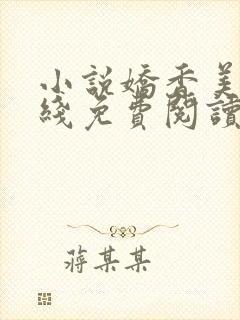 小説嬌香美
綫免費閱讀
蔣某某